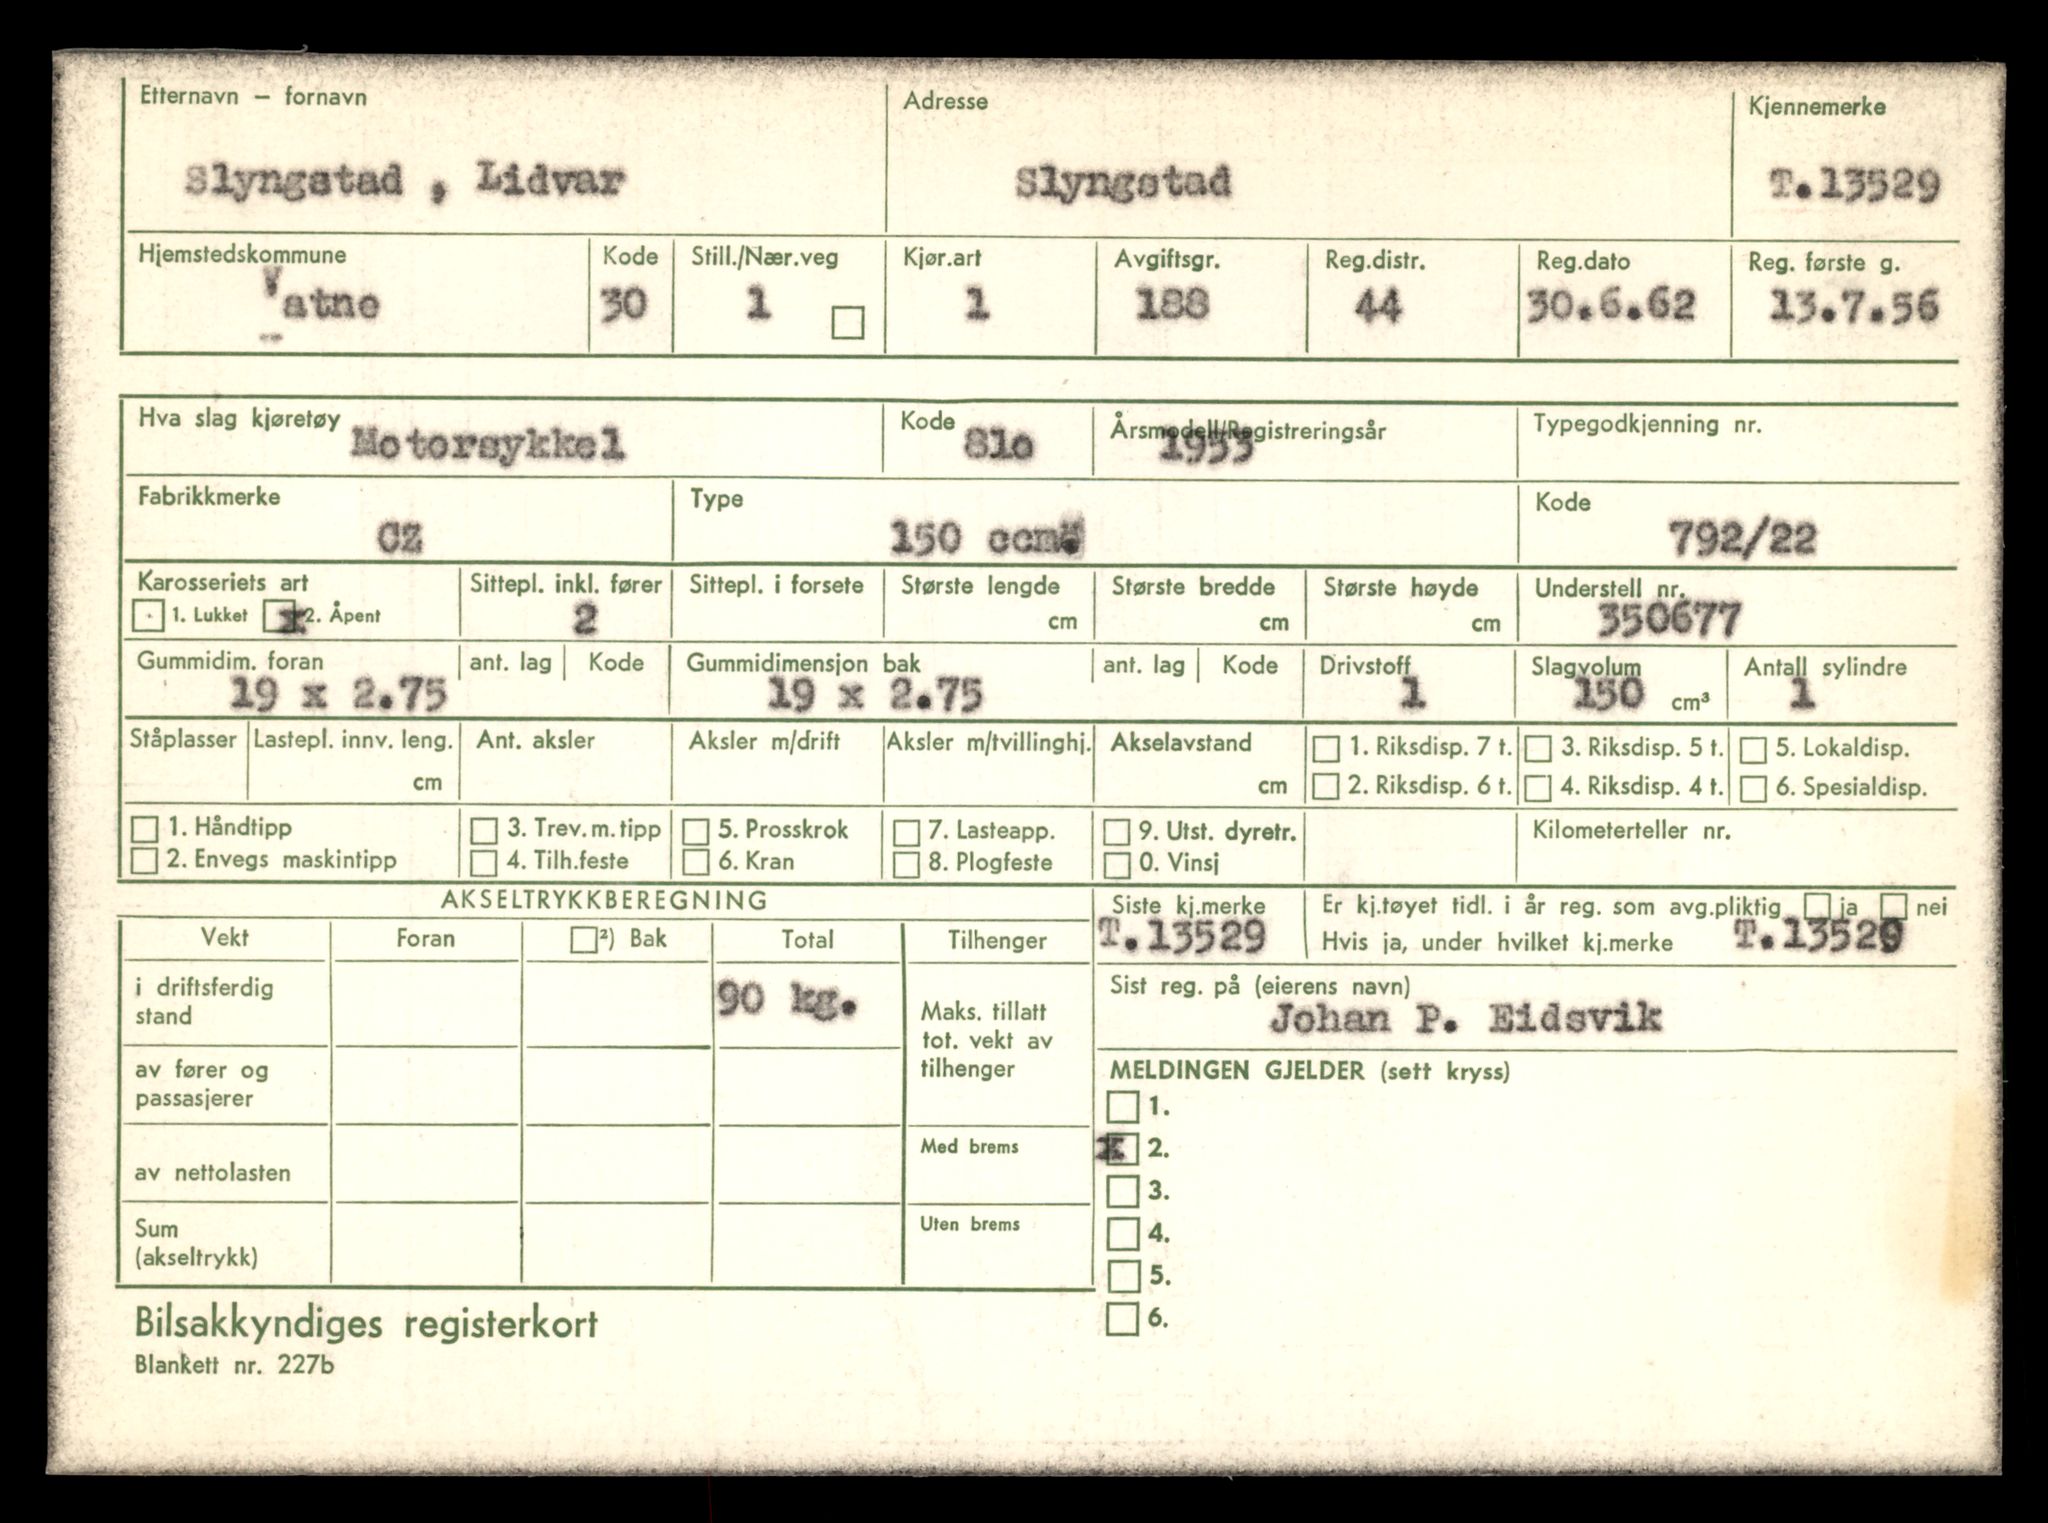 Etternavn – fornavn Adresse Kjennemerke
Slyngstad , Lidvar Slyngstad T.13529
Hjemstedskommune Kode Still./Nær.veg Kjør.art Avgiftsgr. Reg.distr. Reg.dato Reg. første g.
Vatne 30 1 1 188 44 30.6.62 13.7.56
Hva slag kjøretøy Kode Årsmodell/Registreringsår Typegodkjenning nr.
Motorsykkel 81o 1953
Fabrikkmerke Type Kode
CZ 150 ccm. 792/22
Karosseriets art Sittepl. inkl. fører Sittepl. i forsete Største lengde Største bredde Største høyde Understell nr.
1. Lukket x 2. Åpent 2 cm cm cm 350677
Gummidim. foran ant. lag Kode Gummidimensjon bak ant. lag Kode Drivstoff Slagvolum Antall sylindre
19 x 2.75 19 x 2.75 1 150 cm³ 1
Ståplasser Lastepl. innv. leng. Ant. aksler Aksler m/drift Aksler m/tvillinghj. Akselavstand 1. Riksdisp. 7 t. 3. Riksdisp. 5 t. 5. Lokaldisp.
cm cm 2. Riksdisp. 6 t. 4. Riksdisp. 4 t. 6. Spesialdisp.
1. Håndtipp 3. Trev.m.tipp 5. Prosskrok 7. Lasteapp. 9. Utst. dyretr. Kilometerteller nr.
2. Envegs maskintipp 4. Tilh.feste 6. Kran 8. Plogfeste 0. Vinsj
AKSELTRYKKBEREGNING
Vekt Foran ²) Bak Total Tilhenger
i driftsferdig stand 90 kg.
Maks. tillatt
tot. vekt av
tilhenger
av fører og
passasjerer
Med brems
av nettolasten
Uten brems
Sum
(akseltrykk)
Siste kj.merke Er kj.tøyet tidl. i år reg. som avg.pliktig ja nei
T.13529 Hvis ja, under hvilket kj.merke T.13529
Sist reg. på (eierens navn)
Johan P. Eidsvik
MELDINGEN GJELDER (sett kryss)
1.
x 2.
3.
4.
5.
6.
Bilsakkyndiges registerkort
Blankett nr. 227b